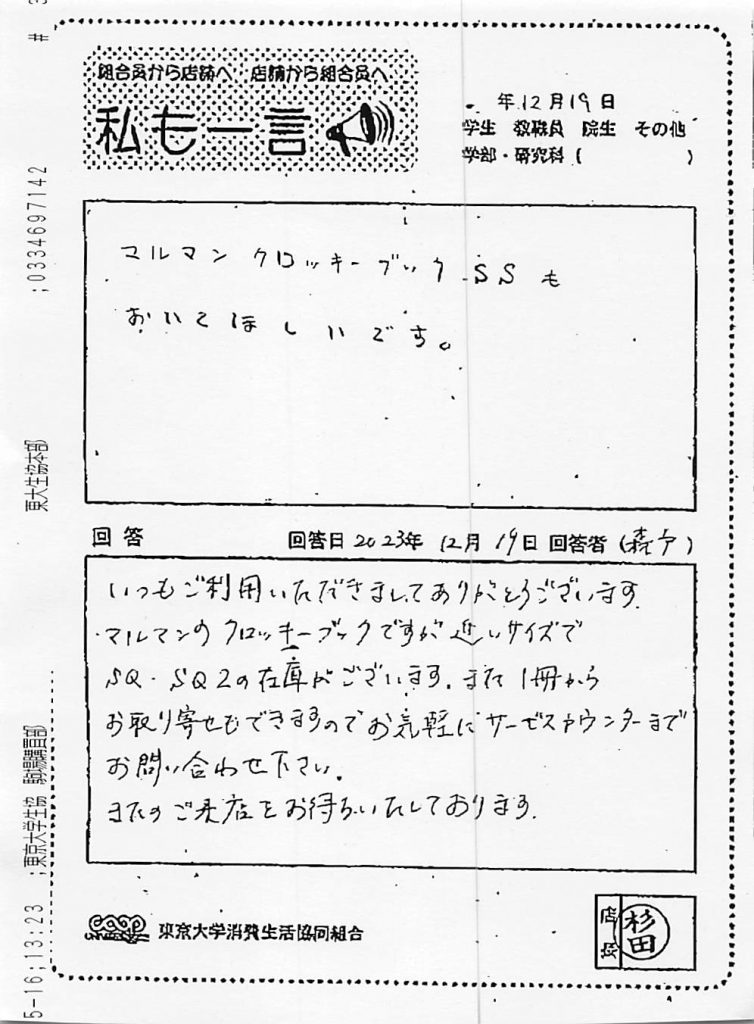 組合員から店舗へ 店舗から組合員へ
私も一言
年12月19日
学生 教職員 院生 その他
学部・研究科( )
マルマン クロッキーブック SSも
おいてほしいです。
回答 回答日 2023年 12月 19日 回答者 ( )
いつもご利用いただきましてありがとうございます.
マルマンのクロッキーブックですが近いサイズで
SQ・SQ2の在庫がございます.また1冊から
お取り寄せもできますのでお気軽にサービスカウンターまで
お問い合わせ下さい.
またのご来店をお待ちいたしております.
東京大学消費生活協同組合
店長 杉田
5-16;13:23 ;東京大学生協 駒場購買部 東大生協本部 ;0334697142 # 3